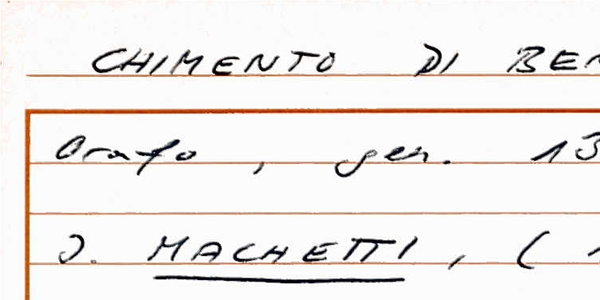 CHIMENTO DI BEN
Orafo, gen. 13
J. MACHETTI, (